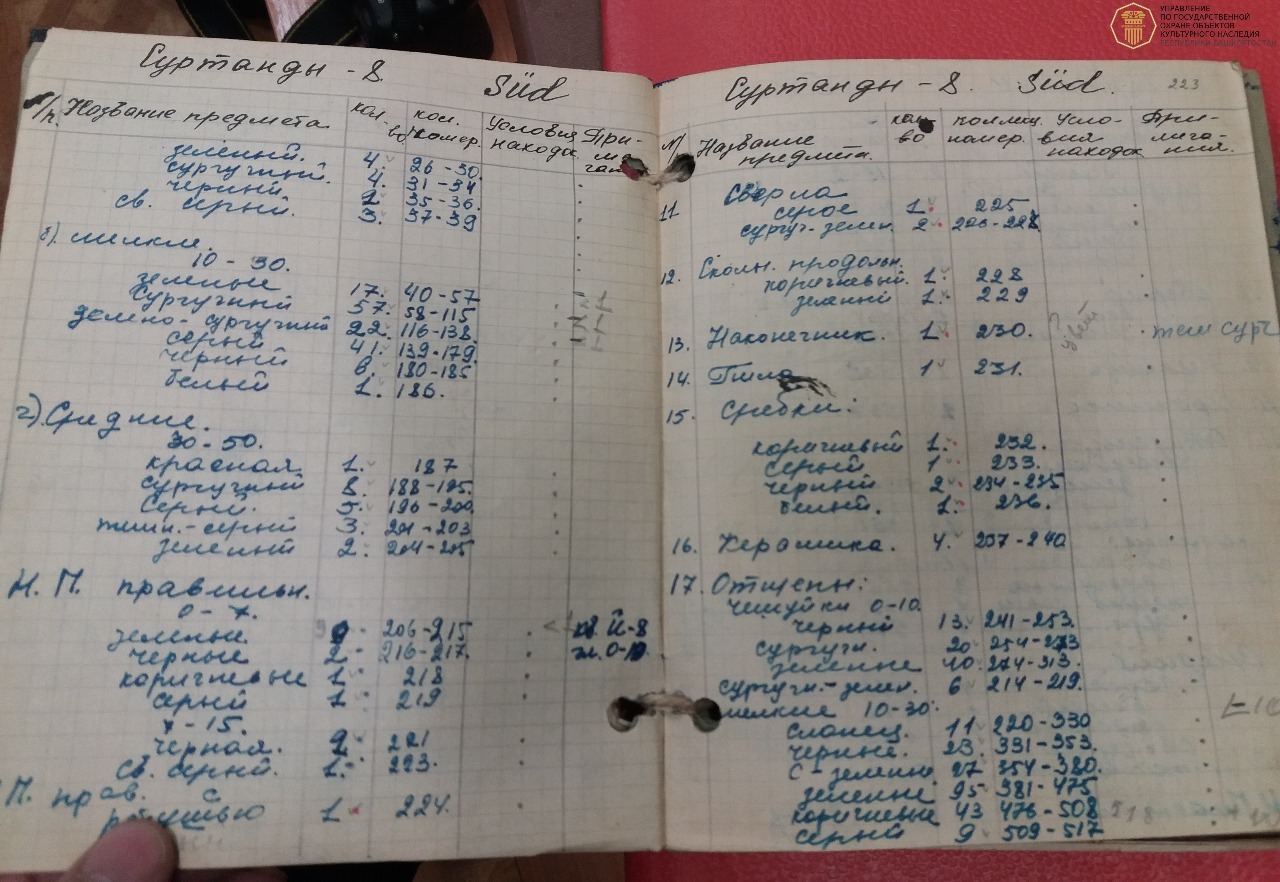 УПРАВЛЕНИЕ
ПО ГОСУДАРСТВЕННОЙ
ОХРАНЕ ОБЪЕКТОВ
КУЛЬТУРНОГО НАСЛЕДИЯ
РЕСПУБЛИКИ БАШКОРТОСТАН
Суртанды - 8. Süd
Название предмета кол. во кол. номер. Условия находок При-
зеленый. 4. 26-30.
сургучный. 4. 31-34
черный. 2 35-36.
св. серый. 3. 37-39
мелкие.
10-30.
зеленые 17. 40-57
Сургучный 57. 58-115
зелено-сургучный 22. 116-138.
серый 41. 139-179.
черный 6. 180-185
белый 1. 186.
г). Средние.
30-50.
красная 1. 187
сургучный 8. 188-195.
Серый. 5. 196-200.
темн.-серый 3. 201-203
зеленый 2. 204-205
Н. П. правильн.
0-7.
зеленые 9 206-215 кв. Й-8
черные 2 216-217. гл. 0-10
коричневые 1 218
серый 1 219
7-15.
черная. 2 221
св. серый. 1. 223.
П. прав. с
1 224.
Суртанды - 8. Süd. 223
Название предмета. кол-во коллекц. номер. Усло-вия находок При-
11 Сверла
серое 1. 225
сургуч-зелен. 2 226-228
12. Сколы. продольн.
коричневый. 1. 228
зеленый 1. 229
13. Наконечник. 1. 230. ? цвет темн сург
14. Пила 1 231.
15. Скребки:
коричневый 1. 232.
серый 1 233.
черный 2 234-235
белый. 1. 236.
16. Керамика. 4. 237-240
17. Отщепы:
чешуйки 0-10.
черный 13. 241-253.
сургучн. 20 254-273
зеленые 40 274-313.
сургучн.-зелен. 6 214-219.
мелкие 10-30:
сланец. 11 220-330
черные. 23. 331-353.
с-зелены 27 354-380.
зеленые 95 381-475
коричневые 43 476-508 518
серый 9 509-517